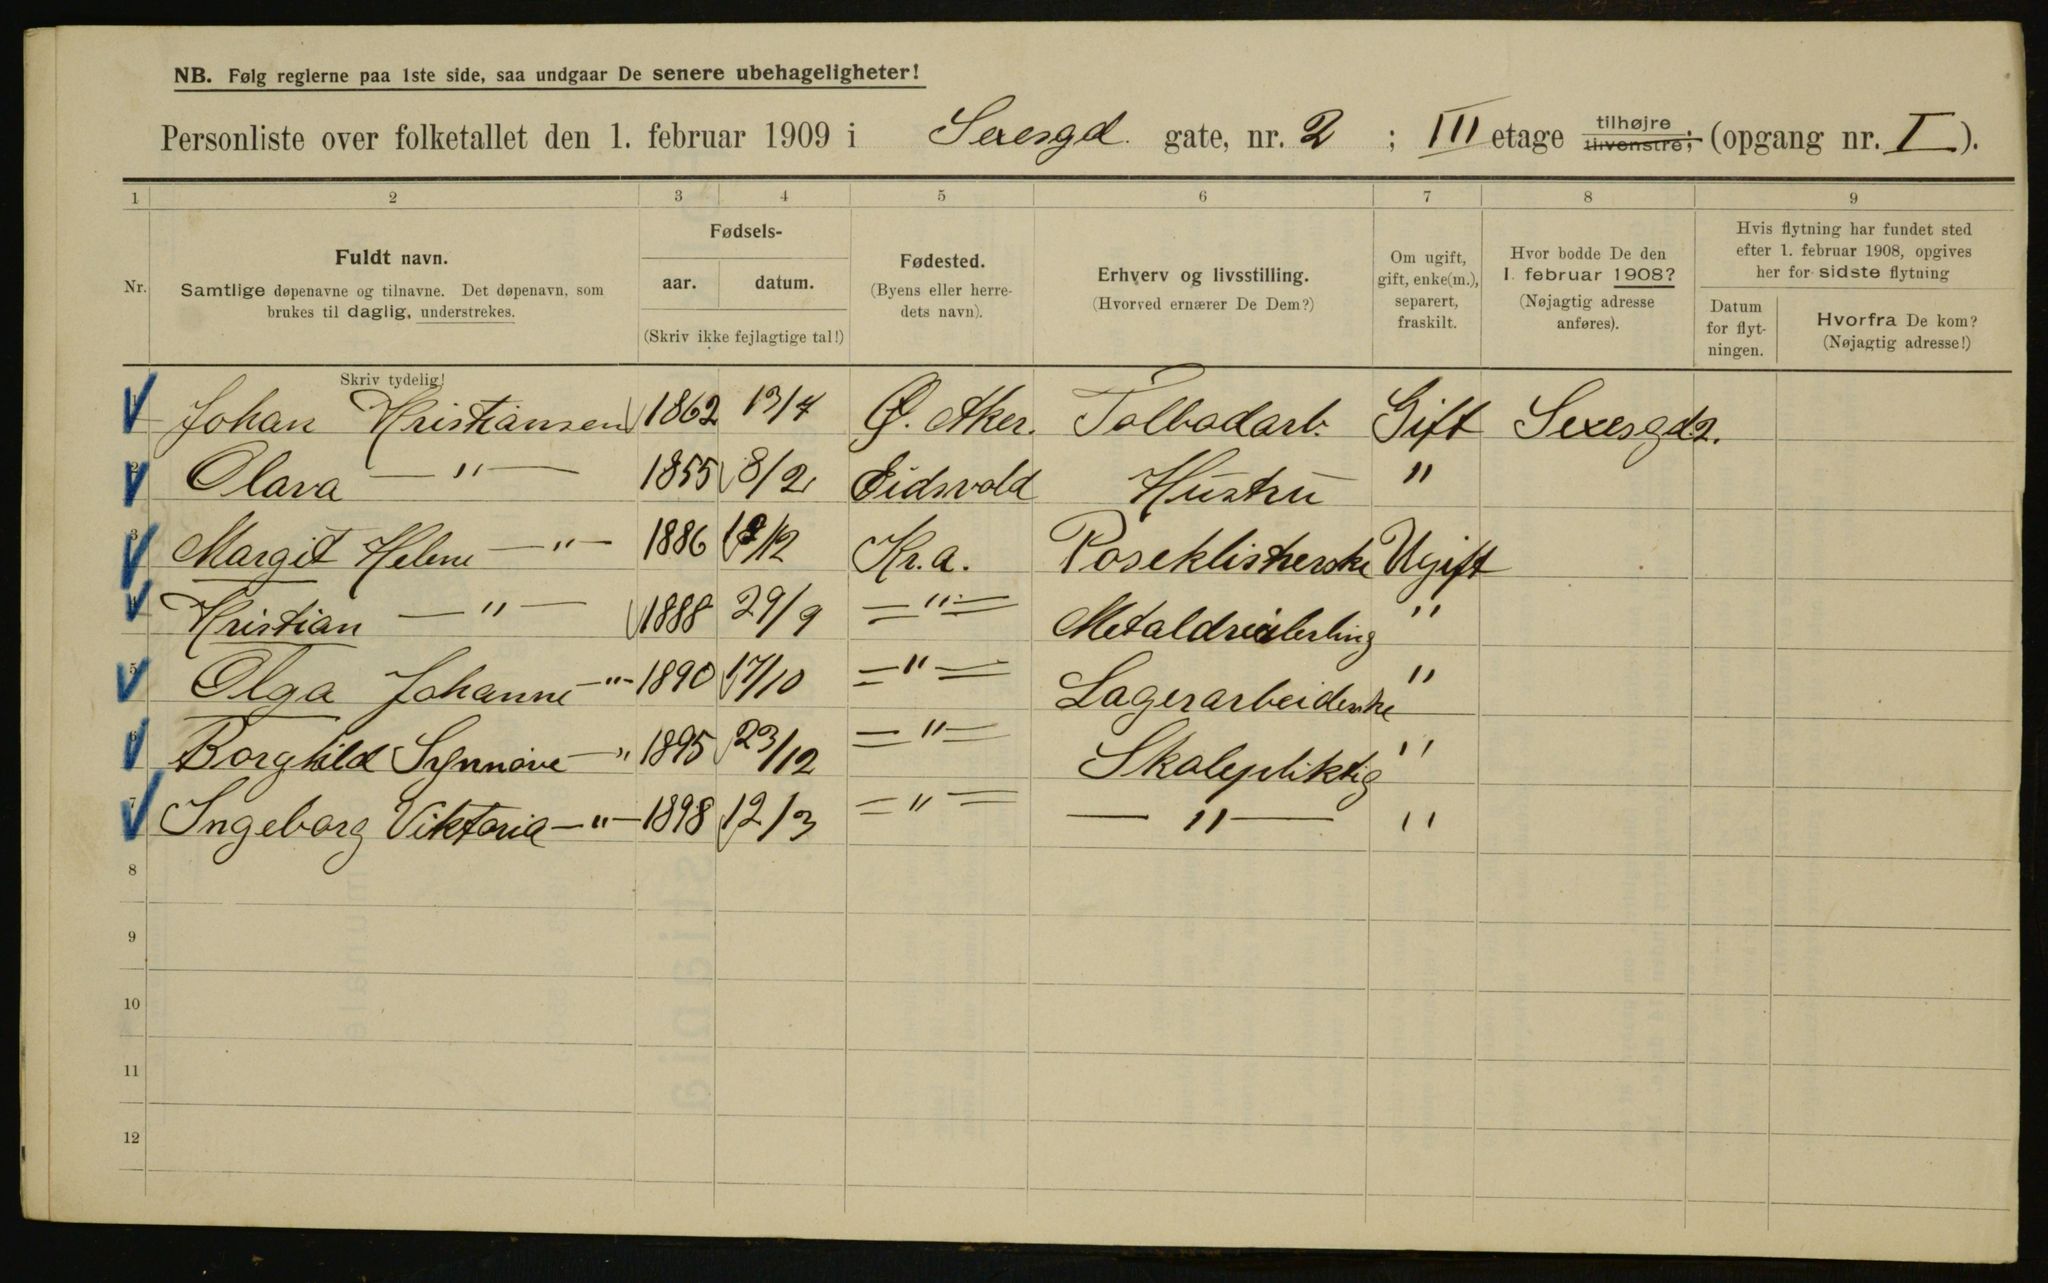 NB. Følg reglerne paa 1ste side, saa undgaar De senere ubehageligheter!
Personliste over folketallet den 1. februar 1909 i Sexesgd. gate, nr. 2 ; III etage tilhøjre tilvenstre; (opgang nr. I ).
1 2 3 4 5 6 7 8 9
Nr.
Fuldt navn.
Samtlige døpenavne og tilnavne. Det døpenavn, som
brukes til daglig, understrekes.
Skriv tydelig!
Fødsels-
aar. datum.
(Skriv ikke fejlagtige tal!)
Fødested.
(Byens eller herre-
dets navn).
Erhverv og livsstilling.
(Hvorved ernærer De Dem?)
Om ugift,
gift, enke(m.),
separert,
fraskilt.
Hvor bodde De den
1. februar 1908?
(Nøjagtig adresse
anføres).
Hvis flytning har fundet sted
efter 1. februar 1908, opgives
her for sidste flytning
Datum
for flyt-
ningen.
Hvorfra De kom?
(Nøjagtig adresse!)
Johan Kristiansen 1862 13/4 Ø. Aker. Tolbodarb. Gift Sexesgd 2.
2 Olava — " — 1855 8/2 Eidsvold Hustru "
3 Margit Helene — " — 1886 /12 Kr.a. Poseklisterske Ugift
4 Kristian — " — 1888 29/9 — " — "
5 Olga Johanne — " — 1890 17/10 — " — Lagerarbeiderske "
6 Borghild Synnøve — " 1895 23/12 — " — Skolepliktig "
7 Ingeborg Viktoria — " — 1898 12/3 — " — — " — "
8
9
10
11
12